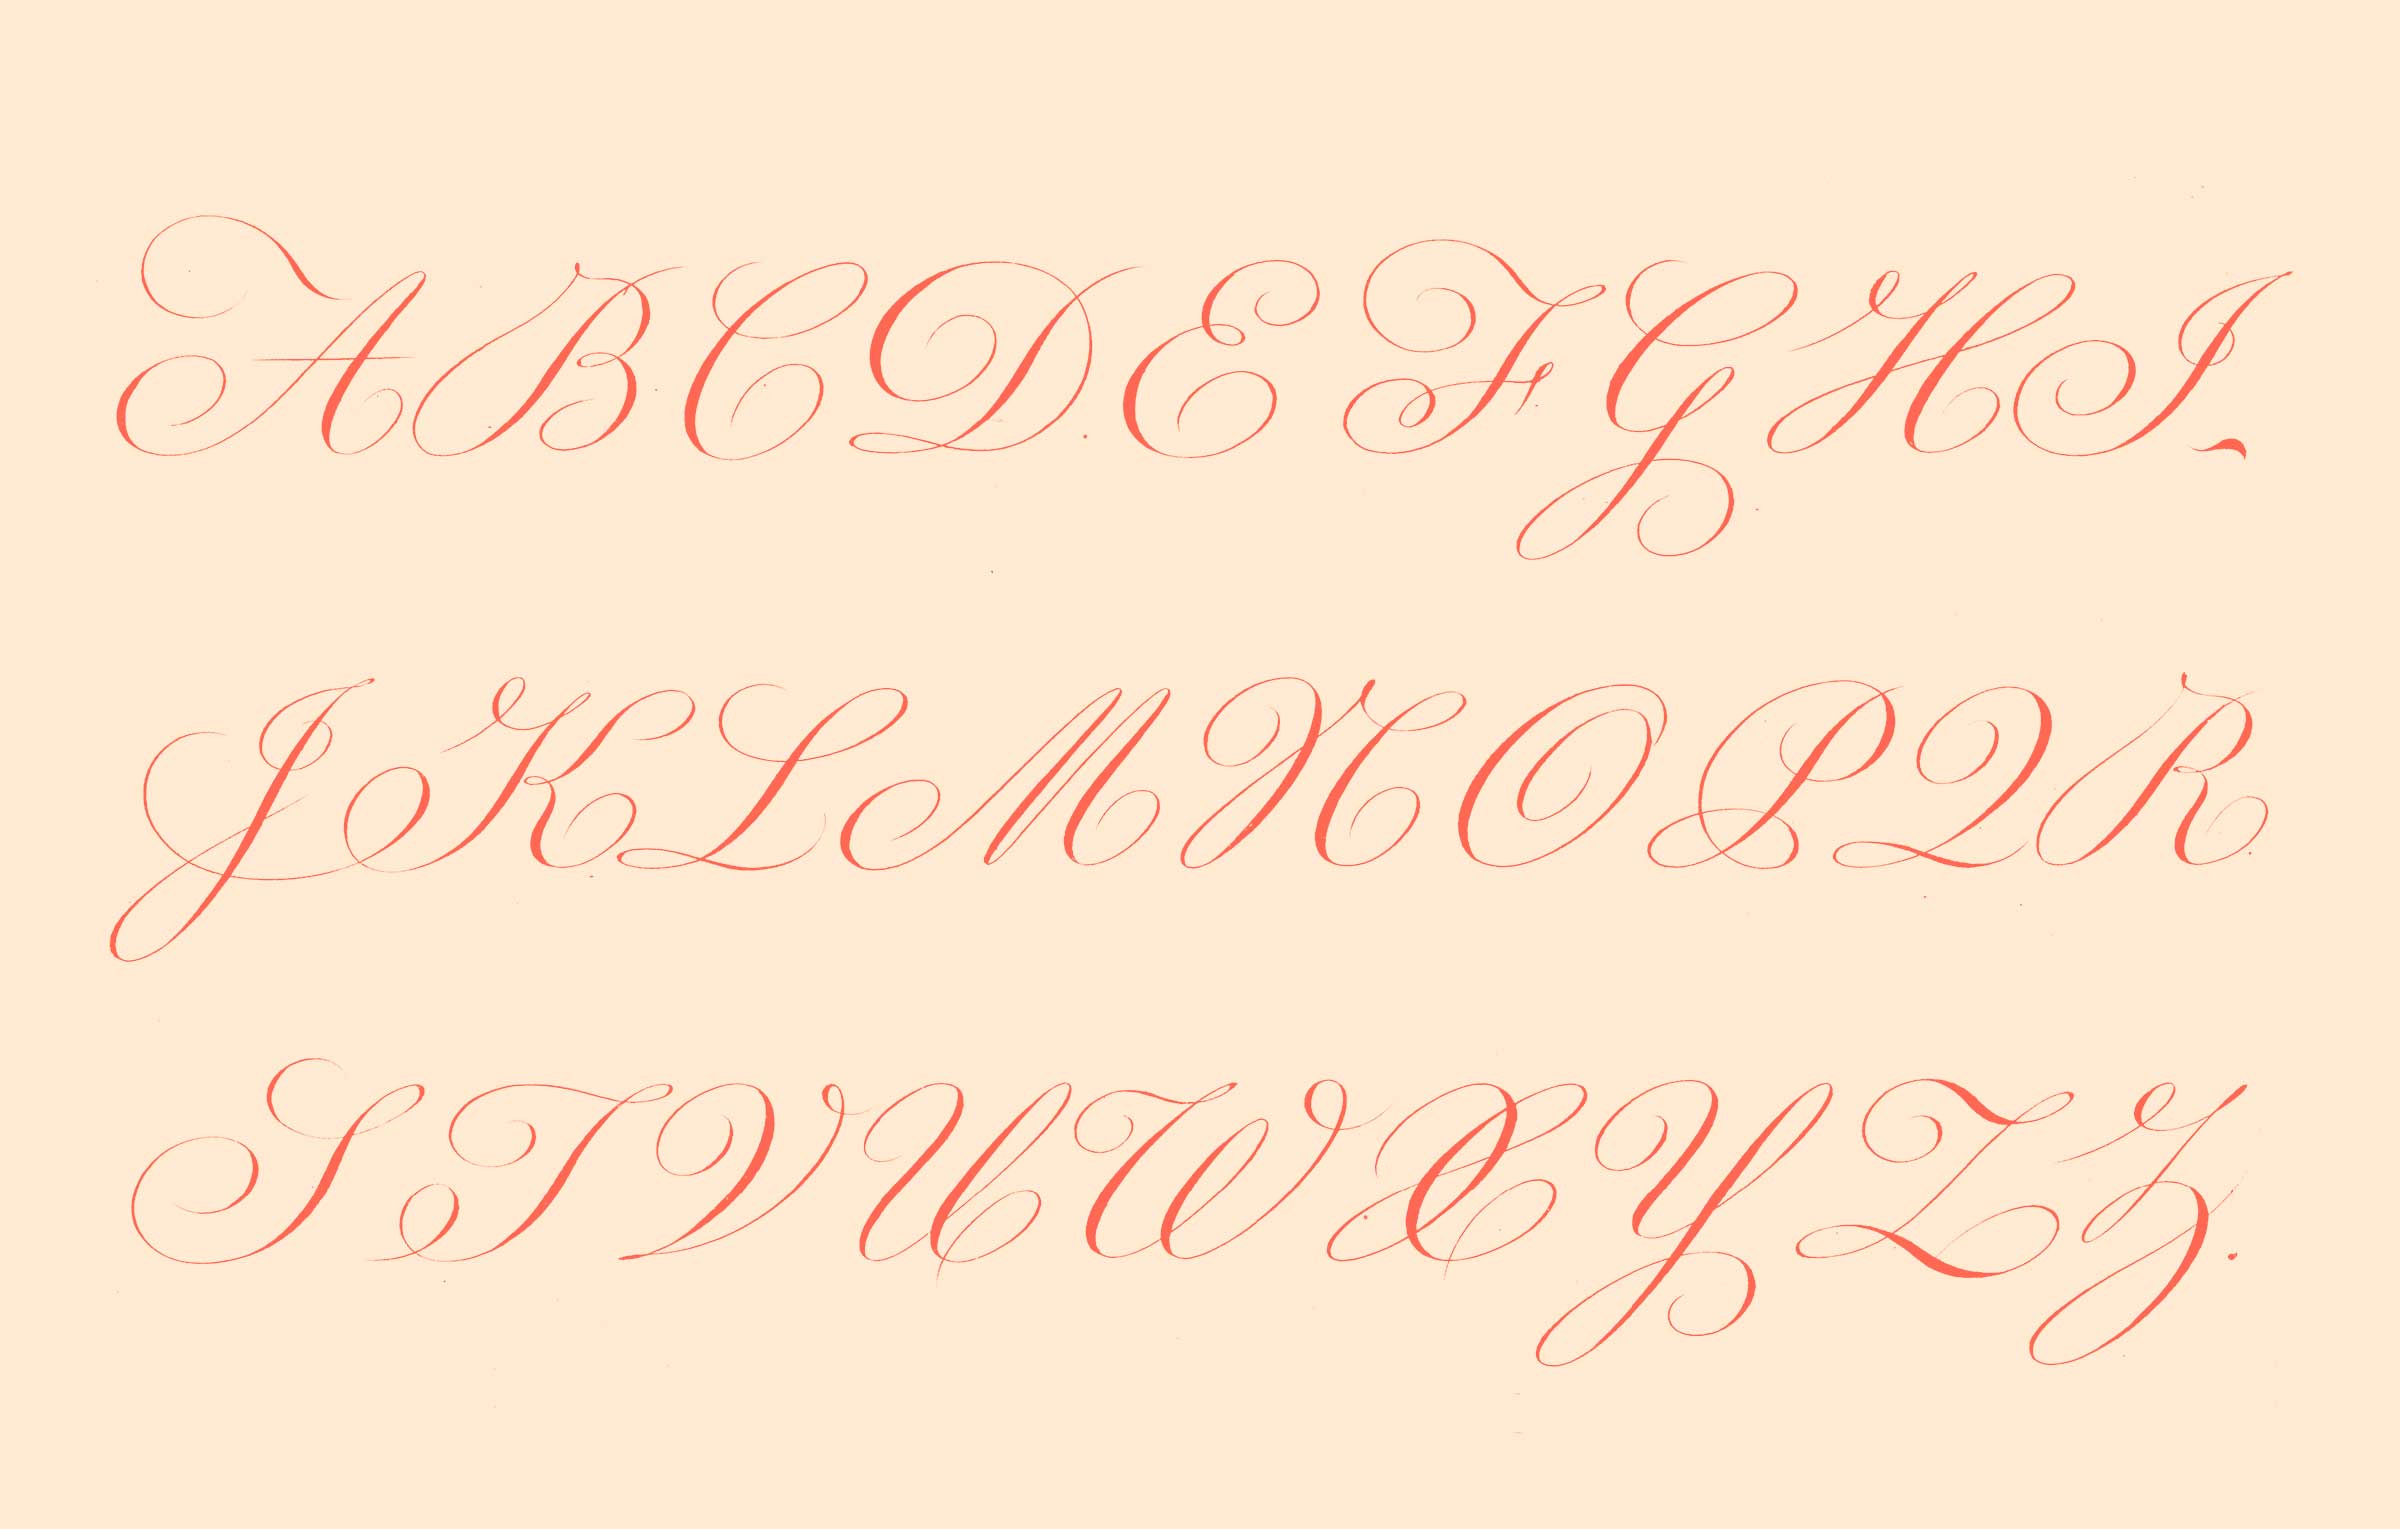 A B C D E F G H I
J K L M N O P Q R
S T V U W X Y Z Z.